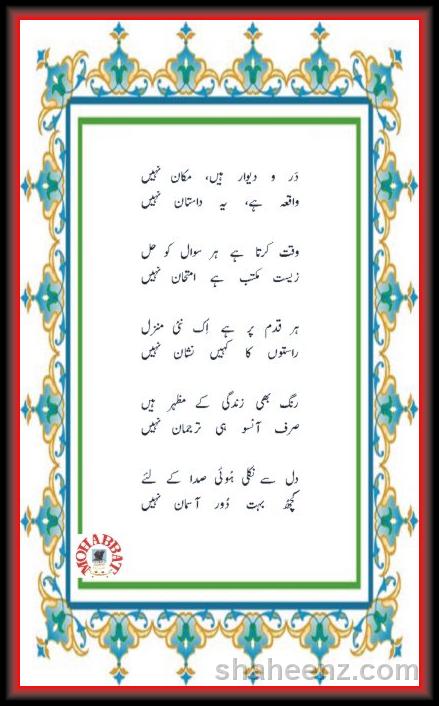 دَر و دیوار ہیں، مکان نہیں
واقعہ ہے، یہ داستان نہیں
وقت کرتا ہے ہر سوال کو حل
زیست مکتب ہے امتحان نہیں
ہر قدم پر ہے اِک نئی منزل
راستوں کا کہیں نشان نہیں
رنگ بھی زندگی کے مظہر ہیں
صرف آنسو ہی ترجمان نہیں
دل سے نکلی ہُوئی صدا کے لئے
کچھ بہت دُور آسمان نہیں
MOHABBAT
shaheenz.com